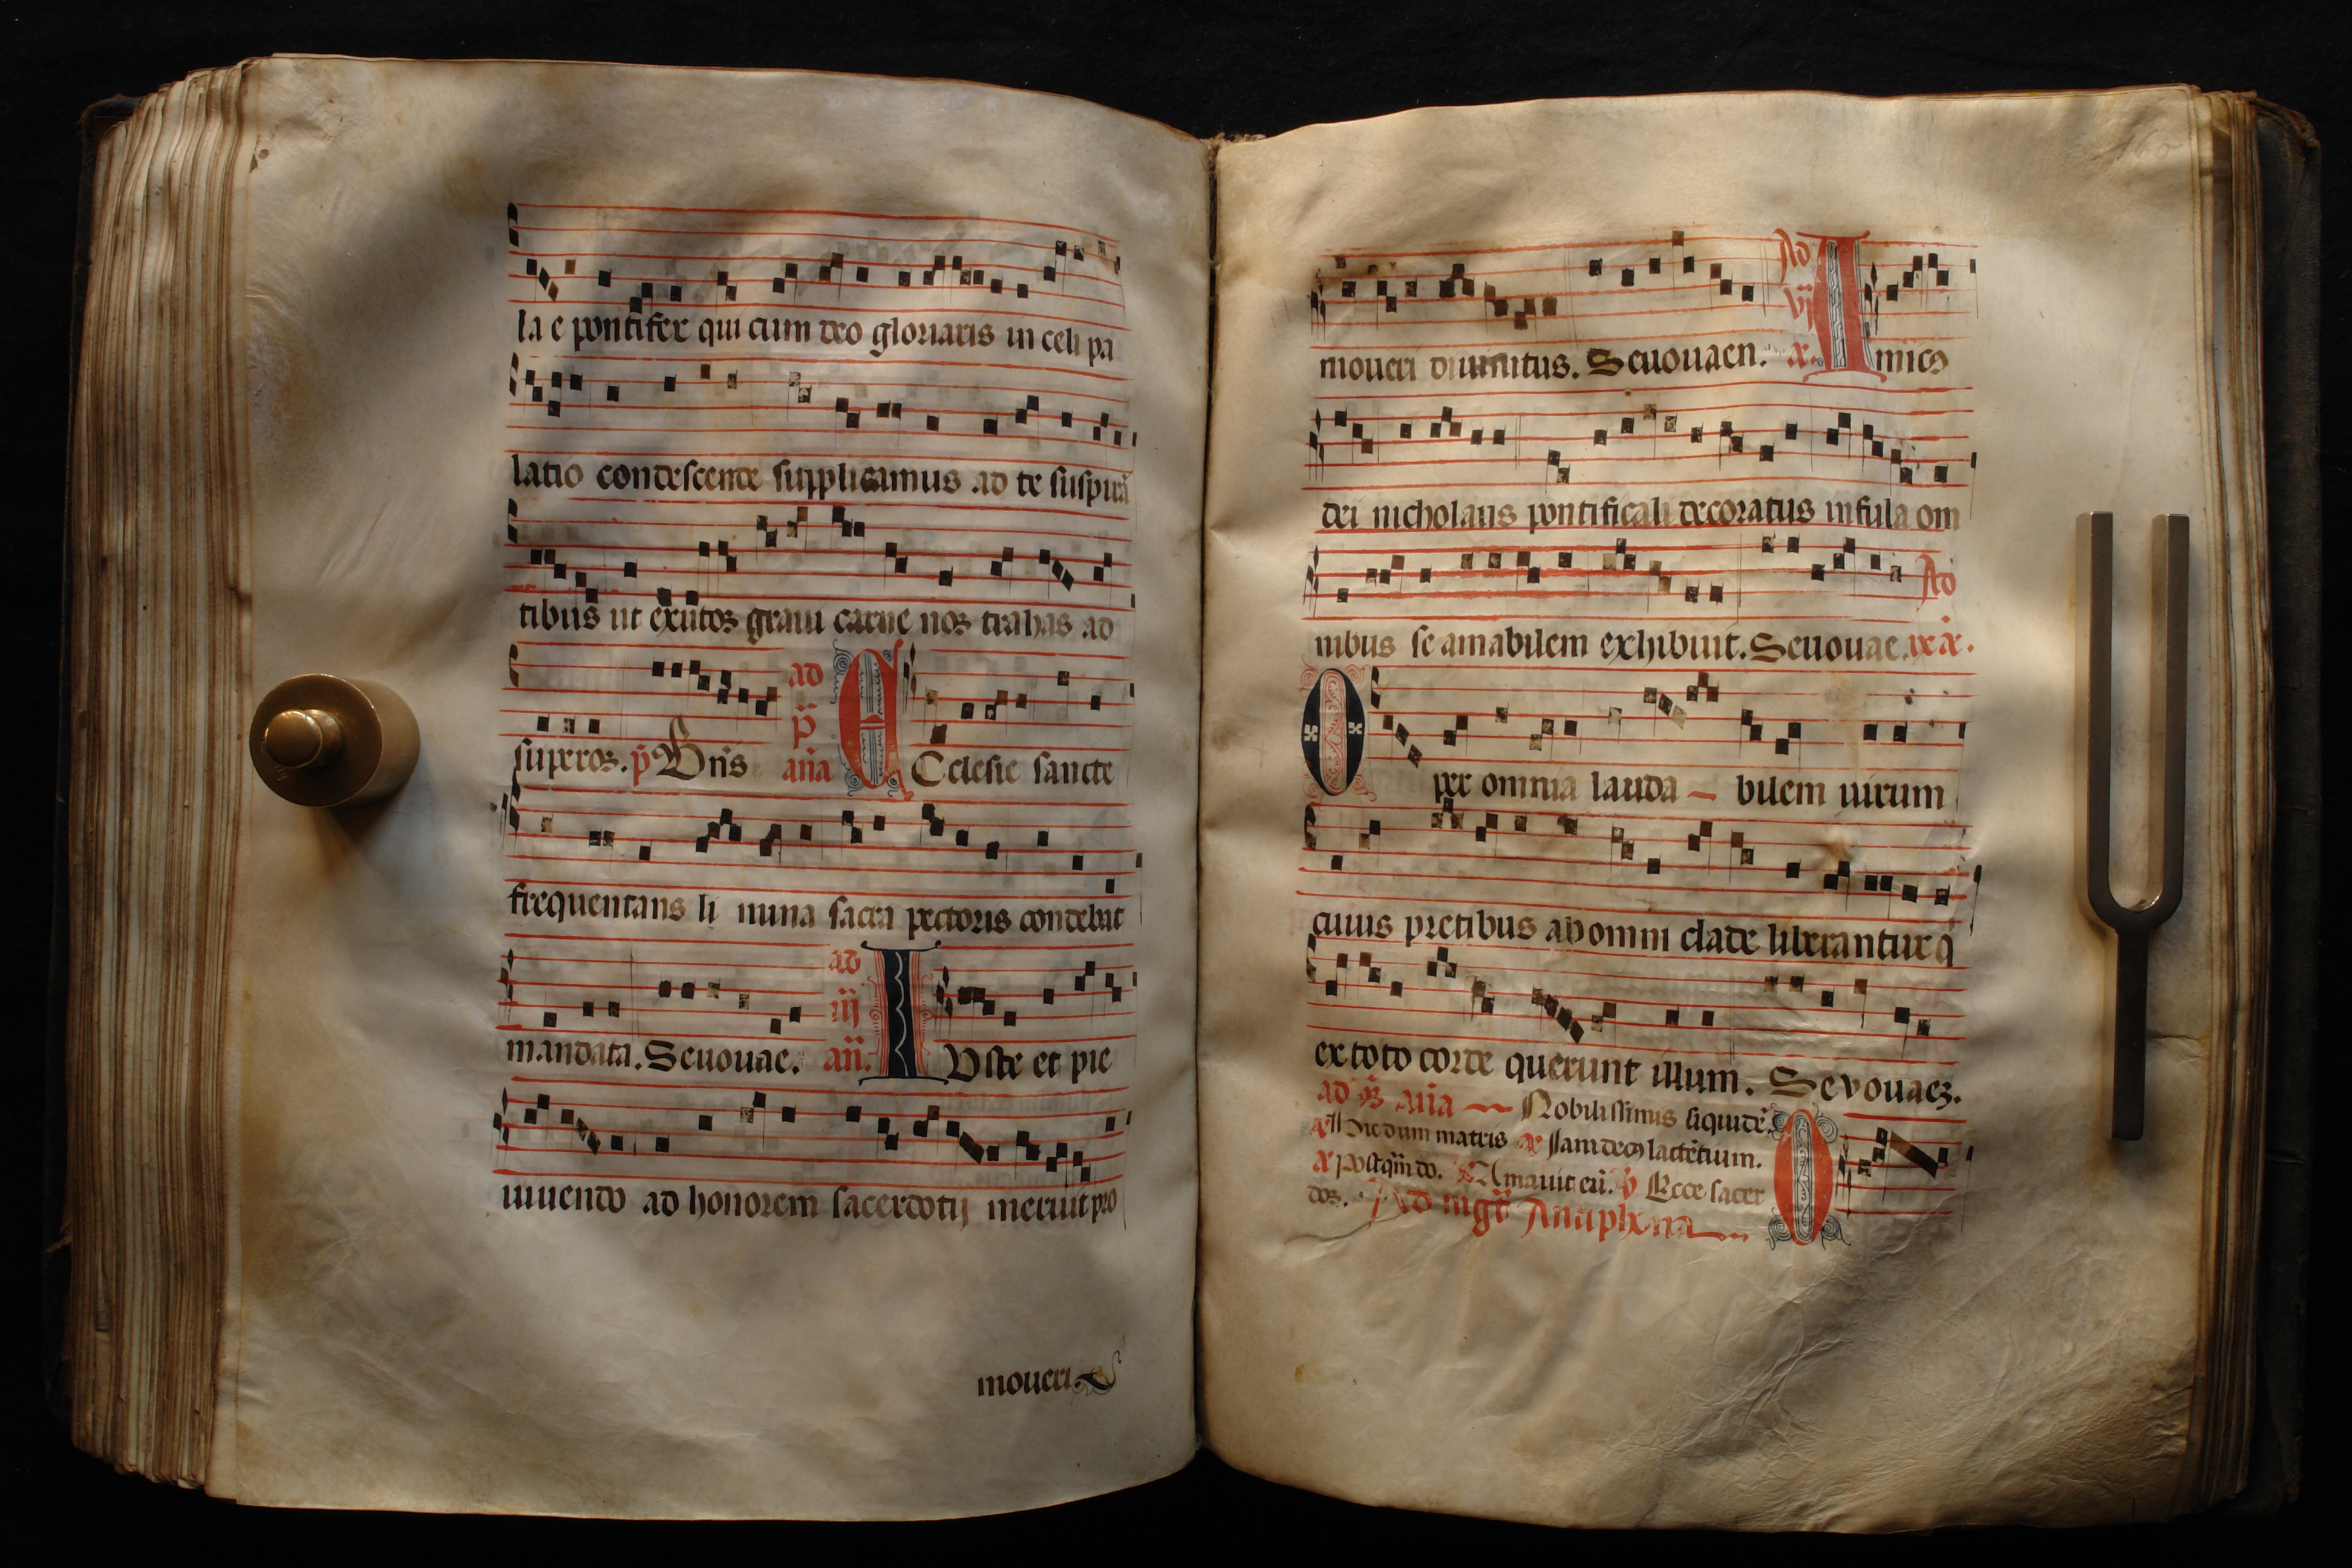 la e pontifex qui cum deo gloriaris in celi pa
latio condescende supplicamus ad te suspirā
tibus ut exutos graui carne nos trahas ad
superos. p̄ Bn̄s ad p̄ aña C Celesie sancte
frequentans li mina sacra pectoris condebat
mandata. Seuouae. ad iij an̄. I Uste et pie
uiuendo ad honorem sacerdotij meruit pro
moueri
160
moueri diuinitus. Seuouaen. Ad vj a. A micꝯ
dei nicholaus pontificali decoratus infula om
nibus se amabilem exhibuit. Seuouae. Ad ix a.
O per omnia lauda — bilem uirum
cuius precibus ab omni clade liberantur q̄
ex toto corde querunt illum. Sevouaeȝ.
aña — Nobilissimus siquidē.
dum matris Iam deꝯ lactētium.
Amauit eū. Ecce sacer
dos. Ad mgt̄ Antiphona O